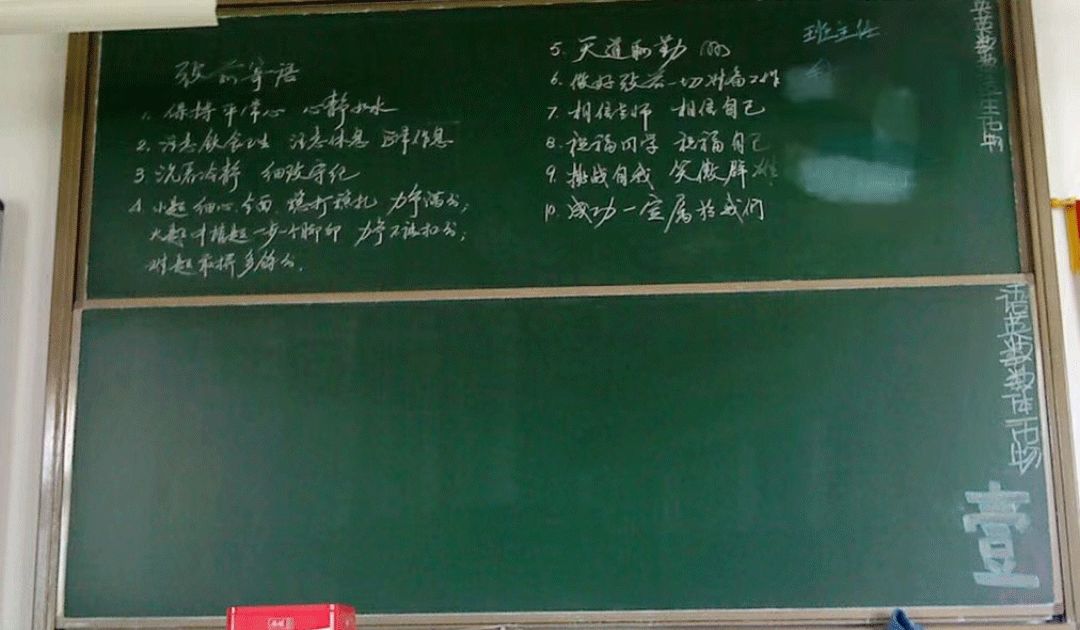 考前寄语
1. 保持平常心 心静如水
2. 注意饮食卫生 注意休息 正常作息
3. 沉着冷静 细致守纪
4. 小题细心、全面 稳打稳扎 力争满分；
大题中档题一步一个脚印 力争不该扣分；
难题最拼多得分.
5. 天道酬勤
6. 做好考前一切准备工作
7. 相信老师 相信自己
8. 祝福同学 祝福自己
9. 挑战自我 笑傲群雄
10. 成功一定属於我们
班主任
英英数 生历物
语英数数体历物
壹